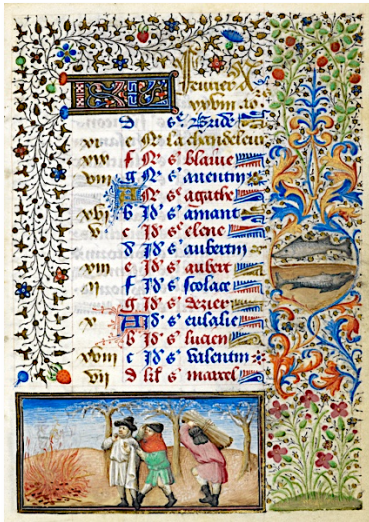 feurier A
xxviii. io
d s^e bride
xi e N^o la chandeleur
xix f N^o s^t blaiue
viii g N^o s^t auentin
A N^o s^e agathe
xvi b Id s^t amant
v Id s^e elene
d Id s^t aubertin
xiii e Id s^t aubert
ii f Id s^e scolace
g Id s^t dezier
x A Id s^e eulalie
b Id s^t lucien
xviii c Id s^t valentin
vii d kl s^t marcel